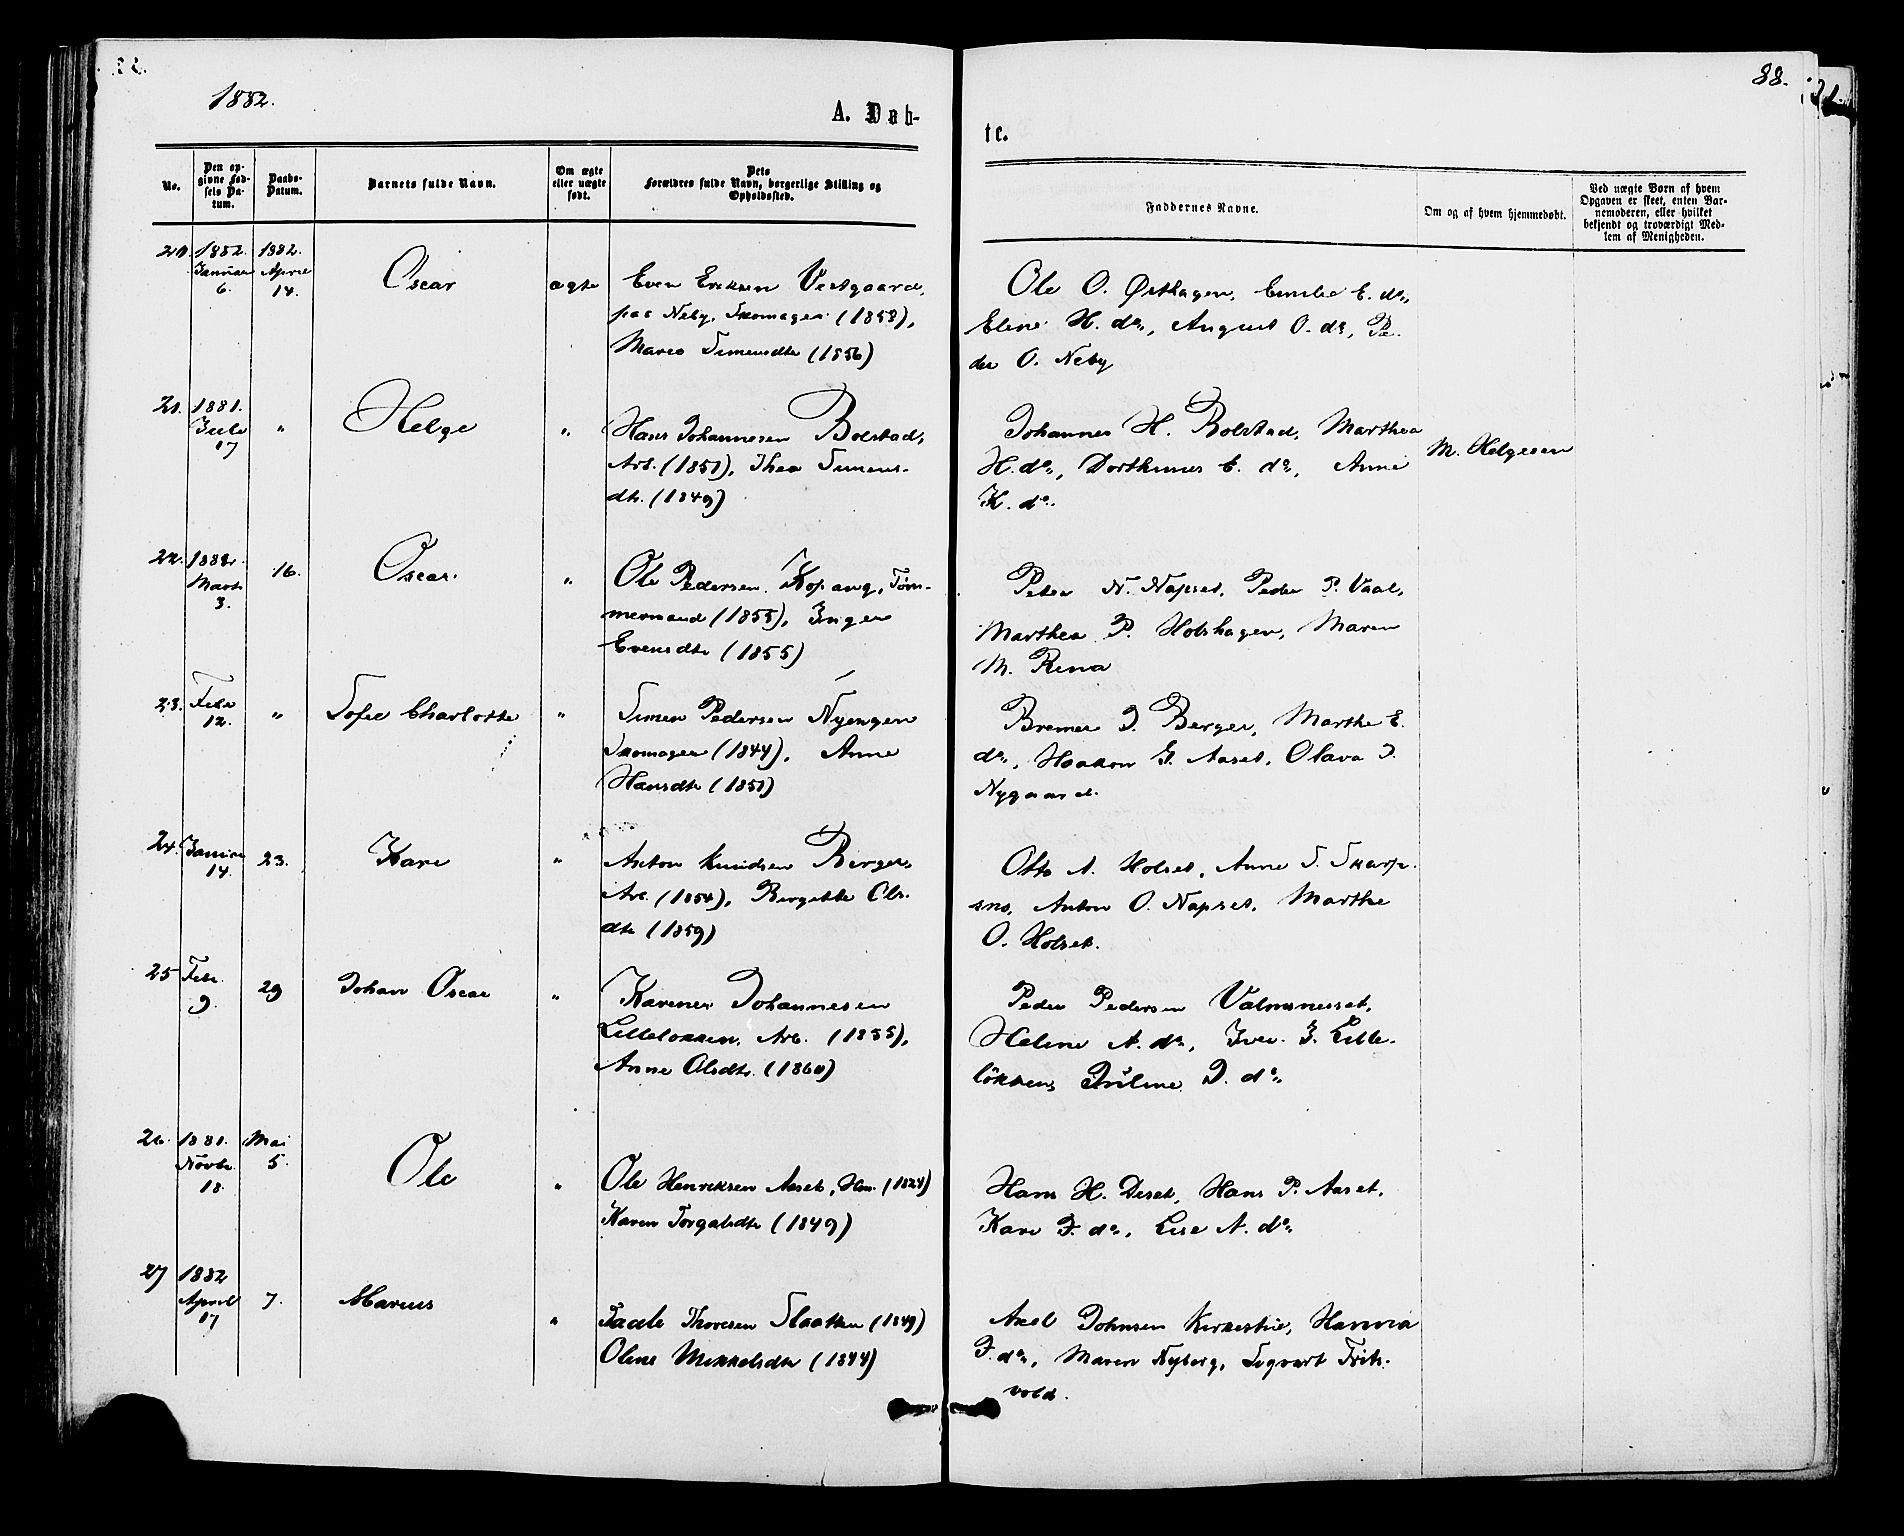 1882.
88.
A. Døb-
te.
No.
Den op-
givne Fød-
sels Da-
tum.
Daabs-
Datum.
Barnets fulde Navn.
Om ægte
eller uægte
født.
Dets
Forældres fulde Navn, borgerlige Stilling og
Opholdssted.
Faddernes Navne.
Om og af hvem hjemmedøbt.
Ved uægte Børn af hvem
Opgaven er skeet, enten Bar-
nemoderen, eller hvilket
bekjendt og troværdigt Med-
lem af Menigheden.
20. 1882. Januar 6. 1882. April 14. Oscar ægte
Even Eriksen Vestgaard,
paa Neby, Skomager (1858),
Maren Simensdtr (1856)
Ole O. Østhagen, Emilie E. do,
Eline H. do, August O. do, Pe-
der O. Neby
21. 1881. Juli 17 " Helge "
Hans Johannesen Bolstad,
Arb. (1851), Thea Simens-
dtr. (1849)
Johannes H. Bolstad, Marthea
H. do, Dorthinus E. do, Anne
K. do.
M. Helgesen
22. 1882. Marts 3. 16. Oscar. "
Ole Pedersen Kopang, Tøm-
mermand (1855), Inger
Evensdtr (1855)
Peter N. Napset, Peder P. Vaal,
Marthea P. Holshagen, Maren
M. Rena
23. Febr 12. " Sofie Charlotte "
Simen Pedersen Nyengen
Skomager (1844), Anne
Hansdtr (1851)
Bremer J. Berger, Marthe E.
do, Haakon G. Aaset, Olava J.
Nygaard.
24. Januar 14. 23. Kari "
Anton Knudsen Berger,
Arb. (1854), Birgitte Ols-
dtr (1859)
Otto A. Holset, Anne S. Skarp-
sno, Anton O. Napset, Marthe
O. Holset.
25 Febr. 9. 29 Johan Oscar "
Karenus Johannesen
Lilleløkken, Arb. (1855),
Anne Olsdtr. (1860)
Peder Pedersen Valmsnesset,
Helene A. do, Iver J. Lille-
løkken, Juline J. do,
26. 1881. Novbr. 18. Mai 5. Ole "
Ole Henriksen Aaset, (1824)
Karen Torgalsdtr (1849)
Hans H. Deset, Hans P. Aaset,
Kari F. do, Lise A. do
27 1882 April 17 7. Marius "
Taale Thoresen Slaatten (1849)
Oline Mikkelsdtr (1844)
Axel Johnsen Kirkestue, Hanna
F. do, Maren Nyberg, Sigvart Frits-
vold.